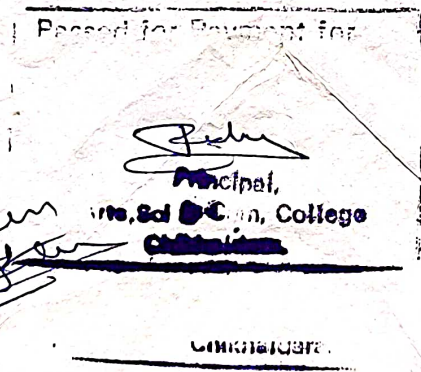 Passed for Payment for
Principal,
Arts, Sci & Com, College
Chikhaldara.
Chikhaldara.